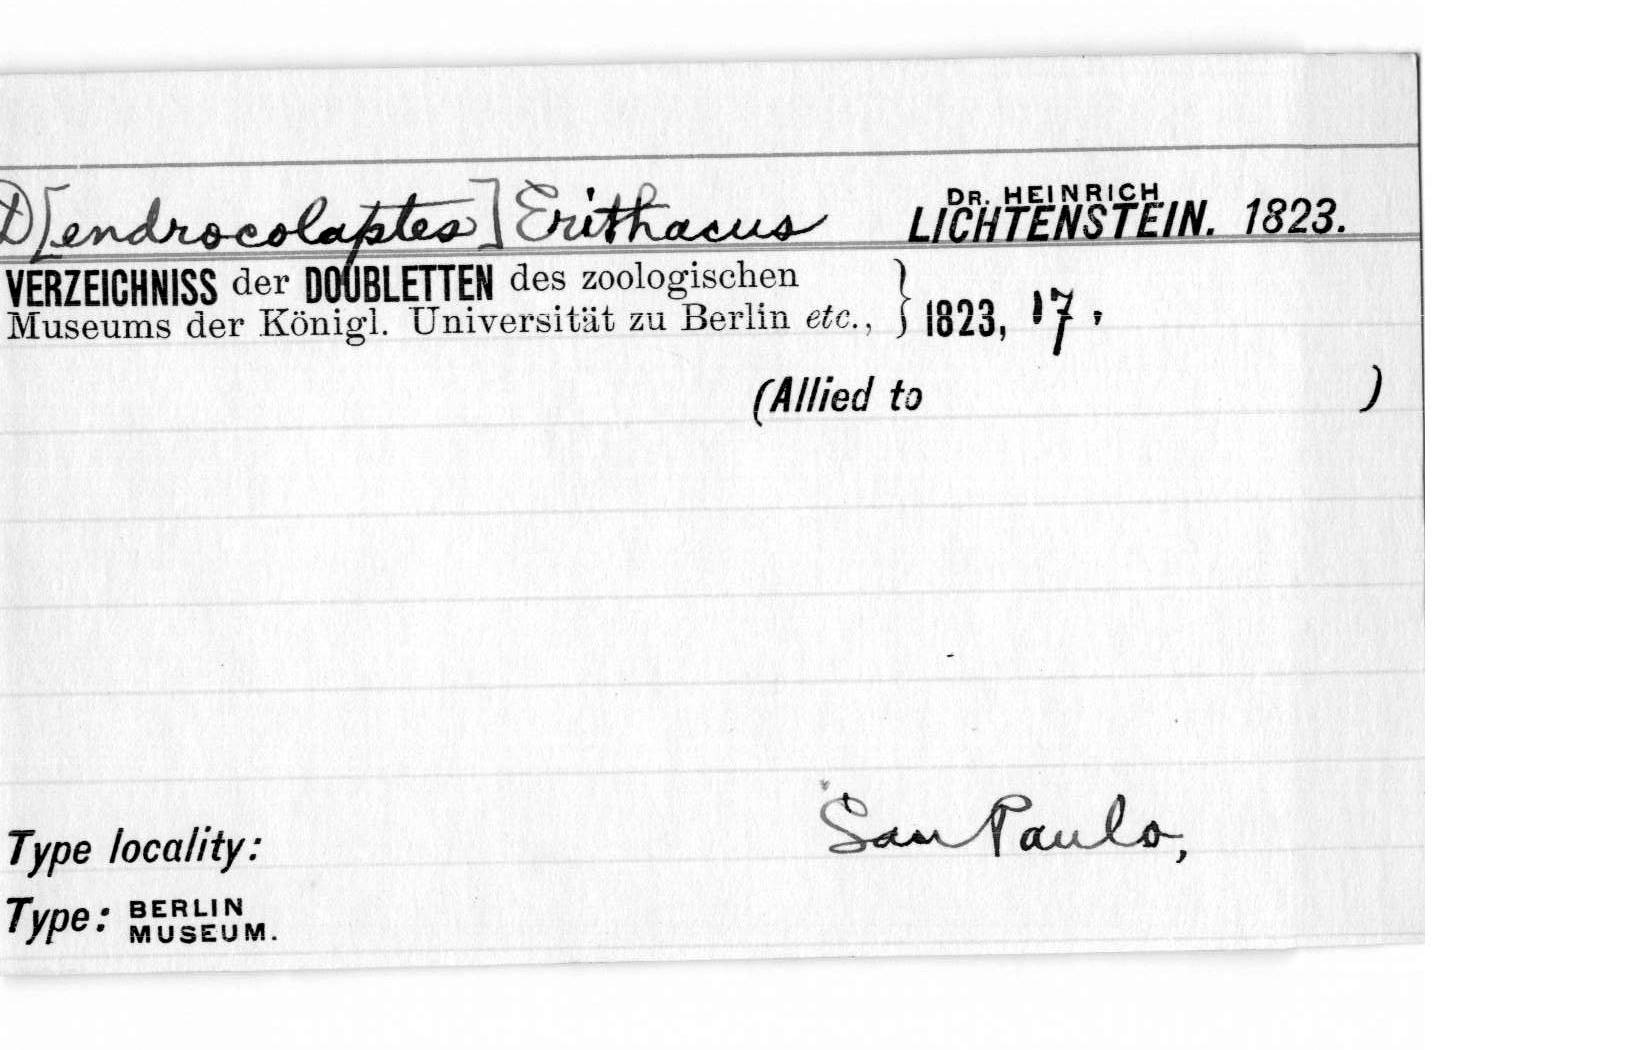 D[endrocolaptes] Erithacus DR. HEINRICH LICHTENSTEIN. 1823.
VERZEICHNISS der DOUBLETTEN des zoologischen
Museums der Königl. Universität zu Berlin etc., } 1823, 17.
(Allied to )
San Paulo,
Type locality:
Type: BERLIN MUSEUM.